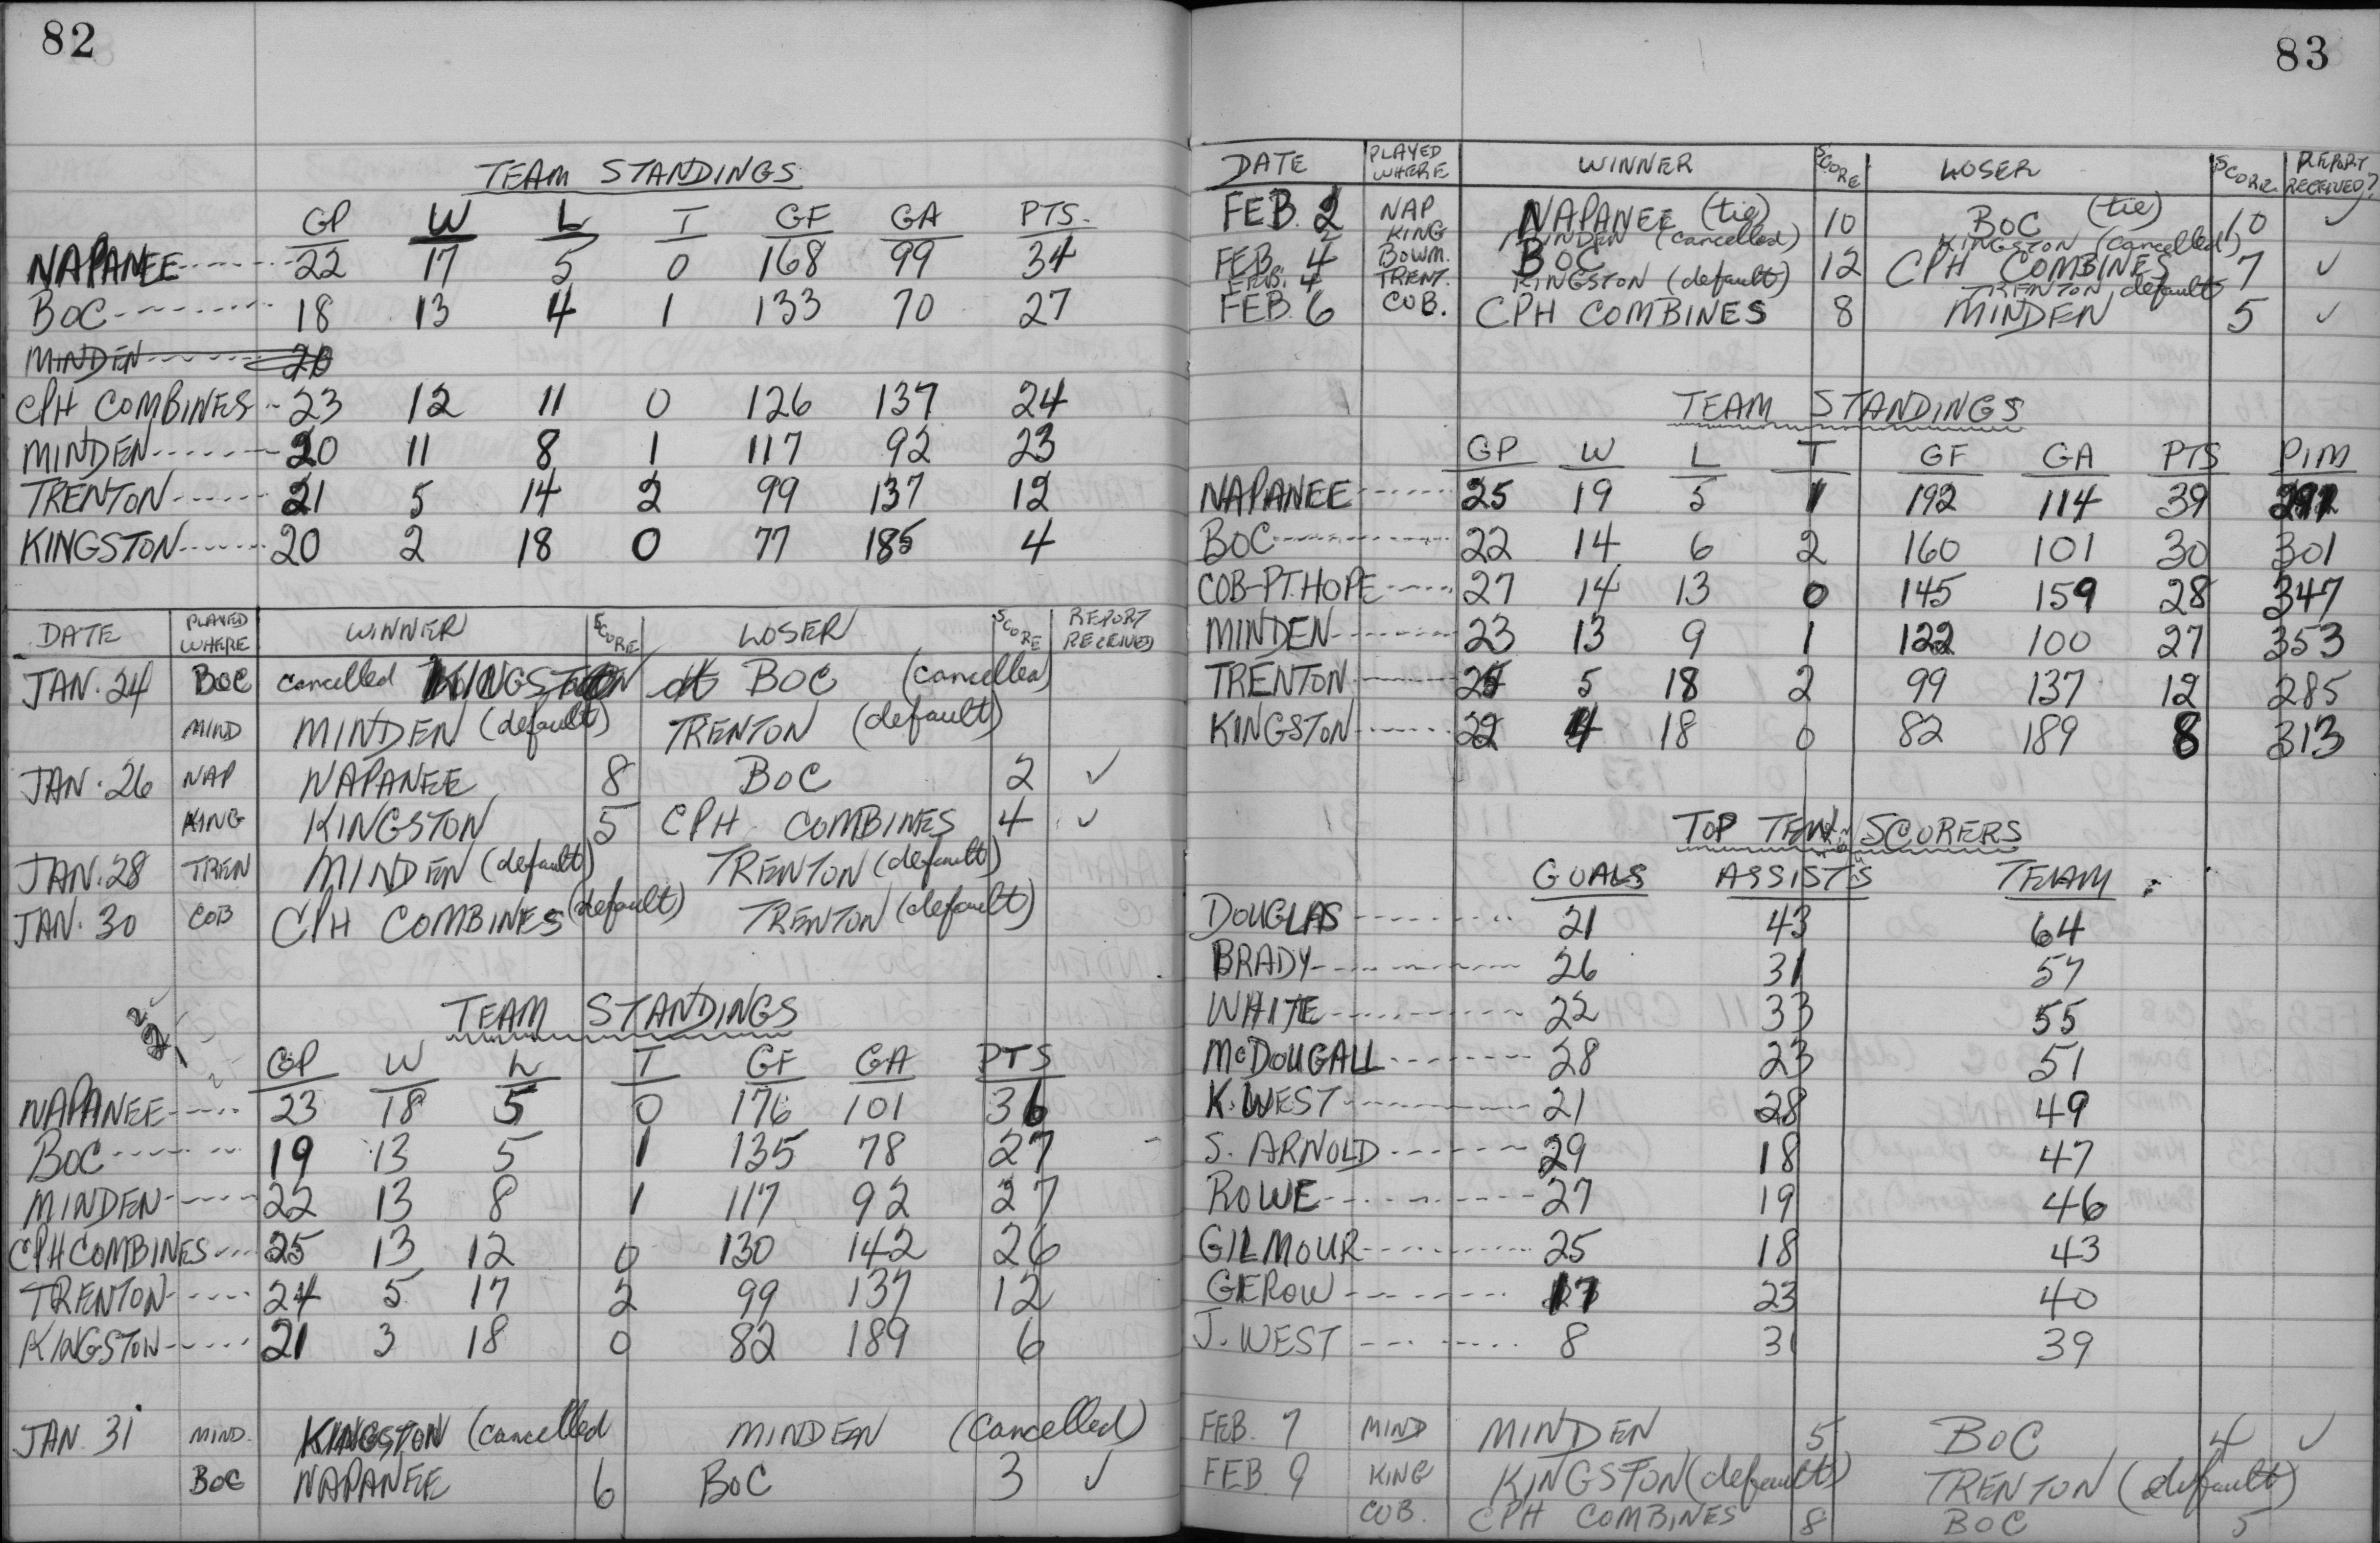 82
TEAM STANDINGS
GP W L T GF GA PTS.
NAPANEE 22 17 5 0 168 99 34
BOC 18 13 4 1 133 70 27
MINDEN 20
CPH COMBINES 23 12 11 0 126 137 24
MINDEN 20 11 8 1 117 92 23
TRENTON 21 5 14 2 99 137 12
KINGSTON 20 2 18 0 77 185 4
DATE PLAYED WHERE WINNER SCORE LOSER SCORE REPORT RECEIVED
JAN. 24 BOC cancelled KINGSTON at BOC (cancelled)
MIND MINDEN (default) TRENTON (default)
JAN. 26 NAP NAPANEE 8 BOC 2 ✓
KING KINGSTON 5 CPH COMBINES 4 ✓
JAN. 28 TREN MINDEN (default) TRENTON (default)
JAN. 30 COB CPH COMBINES (default) TRENTON (default)
TEAM STANDINGS
GP W L T GF GA PTS
NAPANEE 23 18 5 0 176 101 36
BOC 19 13 5 1 135 78 27
MINDEN 22 13 8 1 117 92 27
CPH COMBINES 25 13 12 0 130 142 26
TRENTON 24 5 17 2 99 137 12
KINGSTON 21 3 18 0 82 189 6
JAN. 31 MIND. KINGSTON (cancelled MINDEN (cancelled)
BOC NAPANEE 6 BOC 3 ✓
83
DATE PLAYED WHERE WINNER SCORE LOSER SCORE REPORT RECEIVED?
FEB. 2 NAP NAPANEE (tie) 10 BOC (tie) 10 ✓
KING MINDEN (cancelled) KINGSTON (cancelled)
FEB. 4 BOWM. BOC 12 CPH COMBINES 7 ✓
FEB. 4 TRENT. KINGSTON (default) TRENTON default
FEB. 6 COB. CPH COMBINES 8 MINDEN 5 ✓
TEAM STANDINGS
GP W L T GF GA PTS PIM
NAPANEE 25 19 5 1 192 114 39
BOC 22 14 6 2 160 101 30 301
COB-PT. HOPE 27 14 13 0 145 159 28 347
MINDEN 23 13 9 1 122 100 27 353
TRENTON 25 5 18 2 99 137 12 285
KINGSTON 22 4 18 0 82 189 8 313
TOP TEN SCORERS
GOALS ASSISTS TEAM
DOUGLAS 21 43 64
BRADY 26 31 57
WHITE 22 33 55
McDOUGALL 28 23 51
K. WEST 21 28 49
S. ARNOLD 29 18 47
ROWE 27 19 46
GILMOUR 25 18 43
GEROW 17 23 40
J. WEST 8 31 39
FEB. 7 MIND MINDEN 5 BOC 4 ✓
FEB 9 KING KINGSTON (default) TRENTON (default)
COB. CPH COMBINES 8 BOC 5